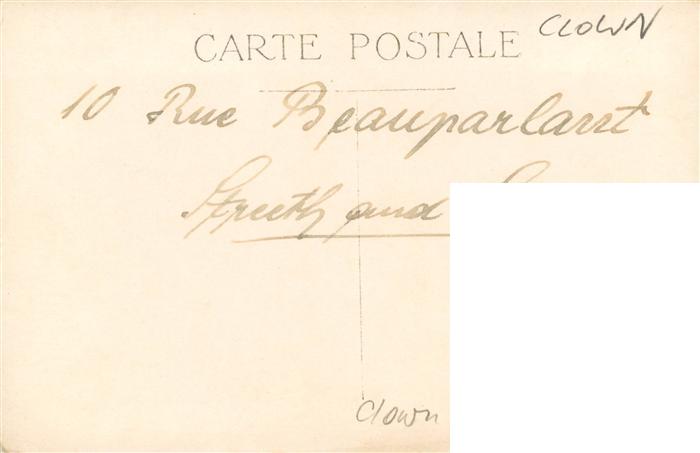 CLOWN
CARTE POSTALE
10 Rue Beauparlant
and
Clown